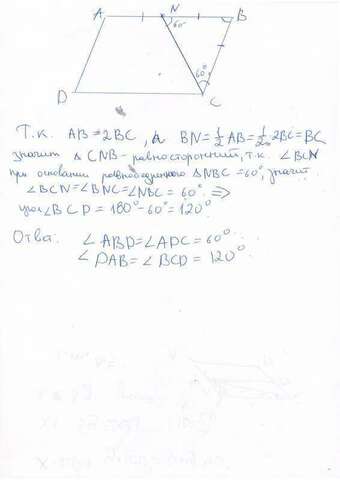 A N B
60°
60°
D C
Т.к. AB = 2BC, а BN = 1/2 AB = 1/2 2BC = BC
значит △ CNB - равносторонний, т.к. ∠BCN
при основании равнобедренного △NBC = 60°, значит
∠BCN = ∠BNC = ∠NBC = 60° ⇒
угол ∠BCD = 180° - 60° = 120°
Ответ: ∠ABD = ∠ADC = 60°
∠DAB = ∠BCD = 120°